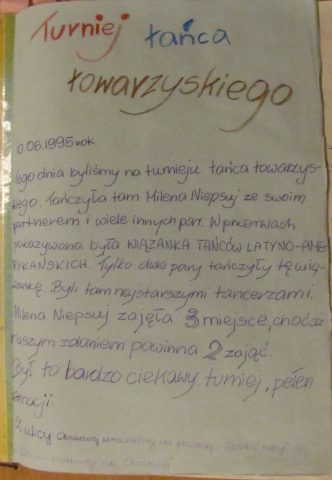 Turniej tańca
towarzyskiego
0.06.1995 rok
Tego dnia byliśmy na turnieju tańca towarzys-
kiego. Tańczyła tam Milena Niepsuj ze swoim
partnerem i wiele innych par. W przerwach
pokazywana była WIĄZANKA TAŃCÓW LATYNO-AME
RYKAŃSKICH. Tylko dwie pary tańczyły tę wią-
zankę. Byli tam najstarszymi tancerzami.
Milena Niepsuj zajęła 3 miejsce, chociaż
naszym zdaniem powinna 2 zająć.
Był to bardzo ciekawy turniej, pełen
emocji.
Z ulicy wróciliśmy na
na